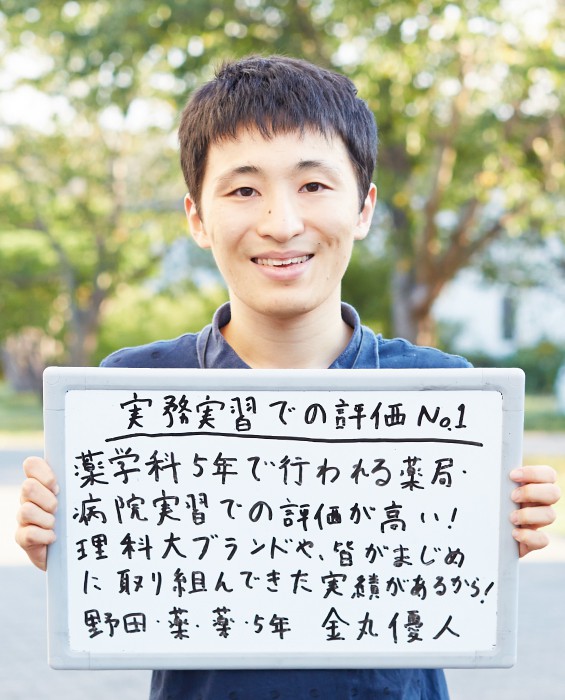 実務実習での評価No.1
薬学科5年で行われる薬局・
病院実習での評価が高い!
理科大ブランドや、皆がまじめ
に取り組んできた実績があるから!
野田・薬・薬・5年 金丸優人